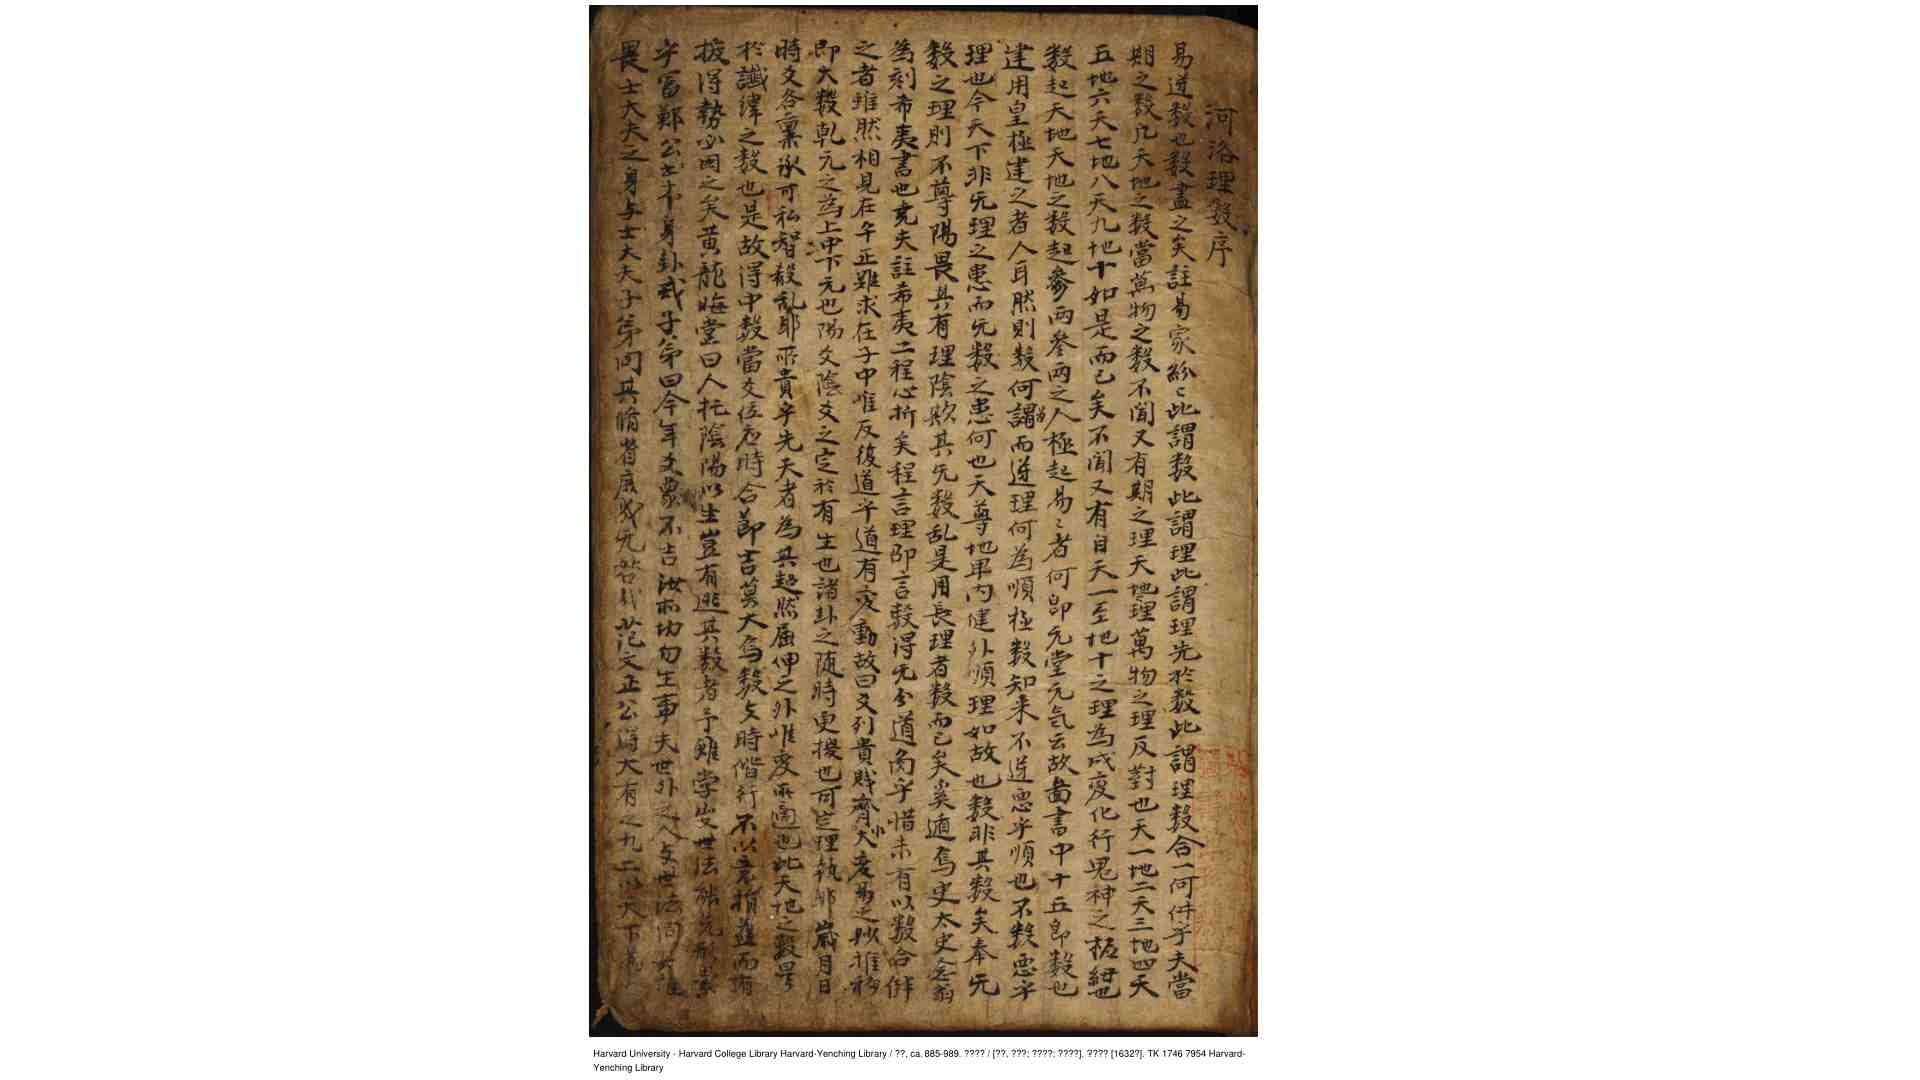 河洛理数序
易道数也数盡之矣註易家紛〻此謂数此謂理此謂理先於数此謂理数合一何倂乎夫當
期之数凡天地之数當萬物之数不闻又有期之理天地理萬物之理反對也天一地二天三地四天
五地六天七地八天九地十如是而已矣不闻又有自天一至地十之理為成変化行鬼神之枢紐也
数起天地天地之数起參兩參兩之人極起易〻者何卽元堂元气云故啚書中十五卽数也
建用皇極建之者人耳然則数何謂而逆理何為順极数知来不逆悪乎順也不数悪乎
理也今天下非无理之患而无数之患何也天尊地卑内健外順理如故也数非其数矣奉无
数之理則不尊陽畏其有理陰欺其无数乱是用長理者数而已矣奚遁焉史太史念翁
為刻希夷書也尭夫註希夷二程心折矣程言理卽言数得无分道啇乎惜未有以数合倂
之者雖然相見在午正難求在子中唯反復道乎道有变動故曰爻列貴賤齊小大变易之妙推移
卽大数乹元之為上中下元也陽爻陰爻之定於有生也諸卦之随時更換也可以理執耶歲月日
時爻各稟承可私智殽乱耶所貴乎先天者為其超然屈伸之外唯变所適也此天地之数异
於讖緯之数也是故得中数當爻位应時合節吉莫大焉数与時偕行不以意損益而有
授得勢必困之矣黄龍晦堂曰人托陰陽以生豈有逃其数者予雖学出世法能免形累
乎富鄭公士夲身卦或子弟曰今年爻象不吉汝切勿生事夫世外之人与世法同
畏士大夫之身与士大夫子弟同其脩省庶或无咎哉范文正公得大有之九二以天下為
Harvard University - Harvard College Library Harvard-Yenching Library / ??, ca. 885-989. ???? / [??, ???; ????; ????]. ???? [1632?]. TK 1746 7954 Harvard-
Yenching Library